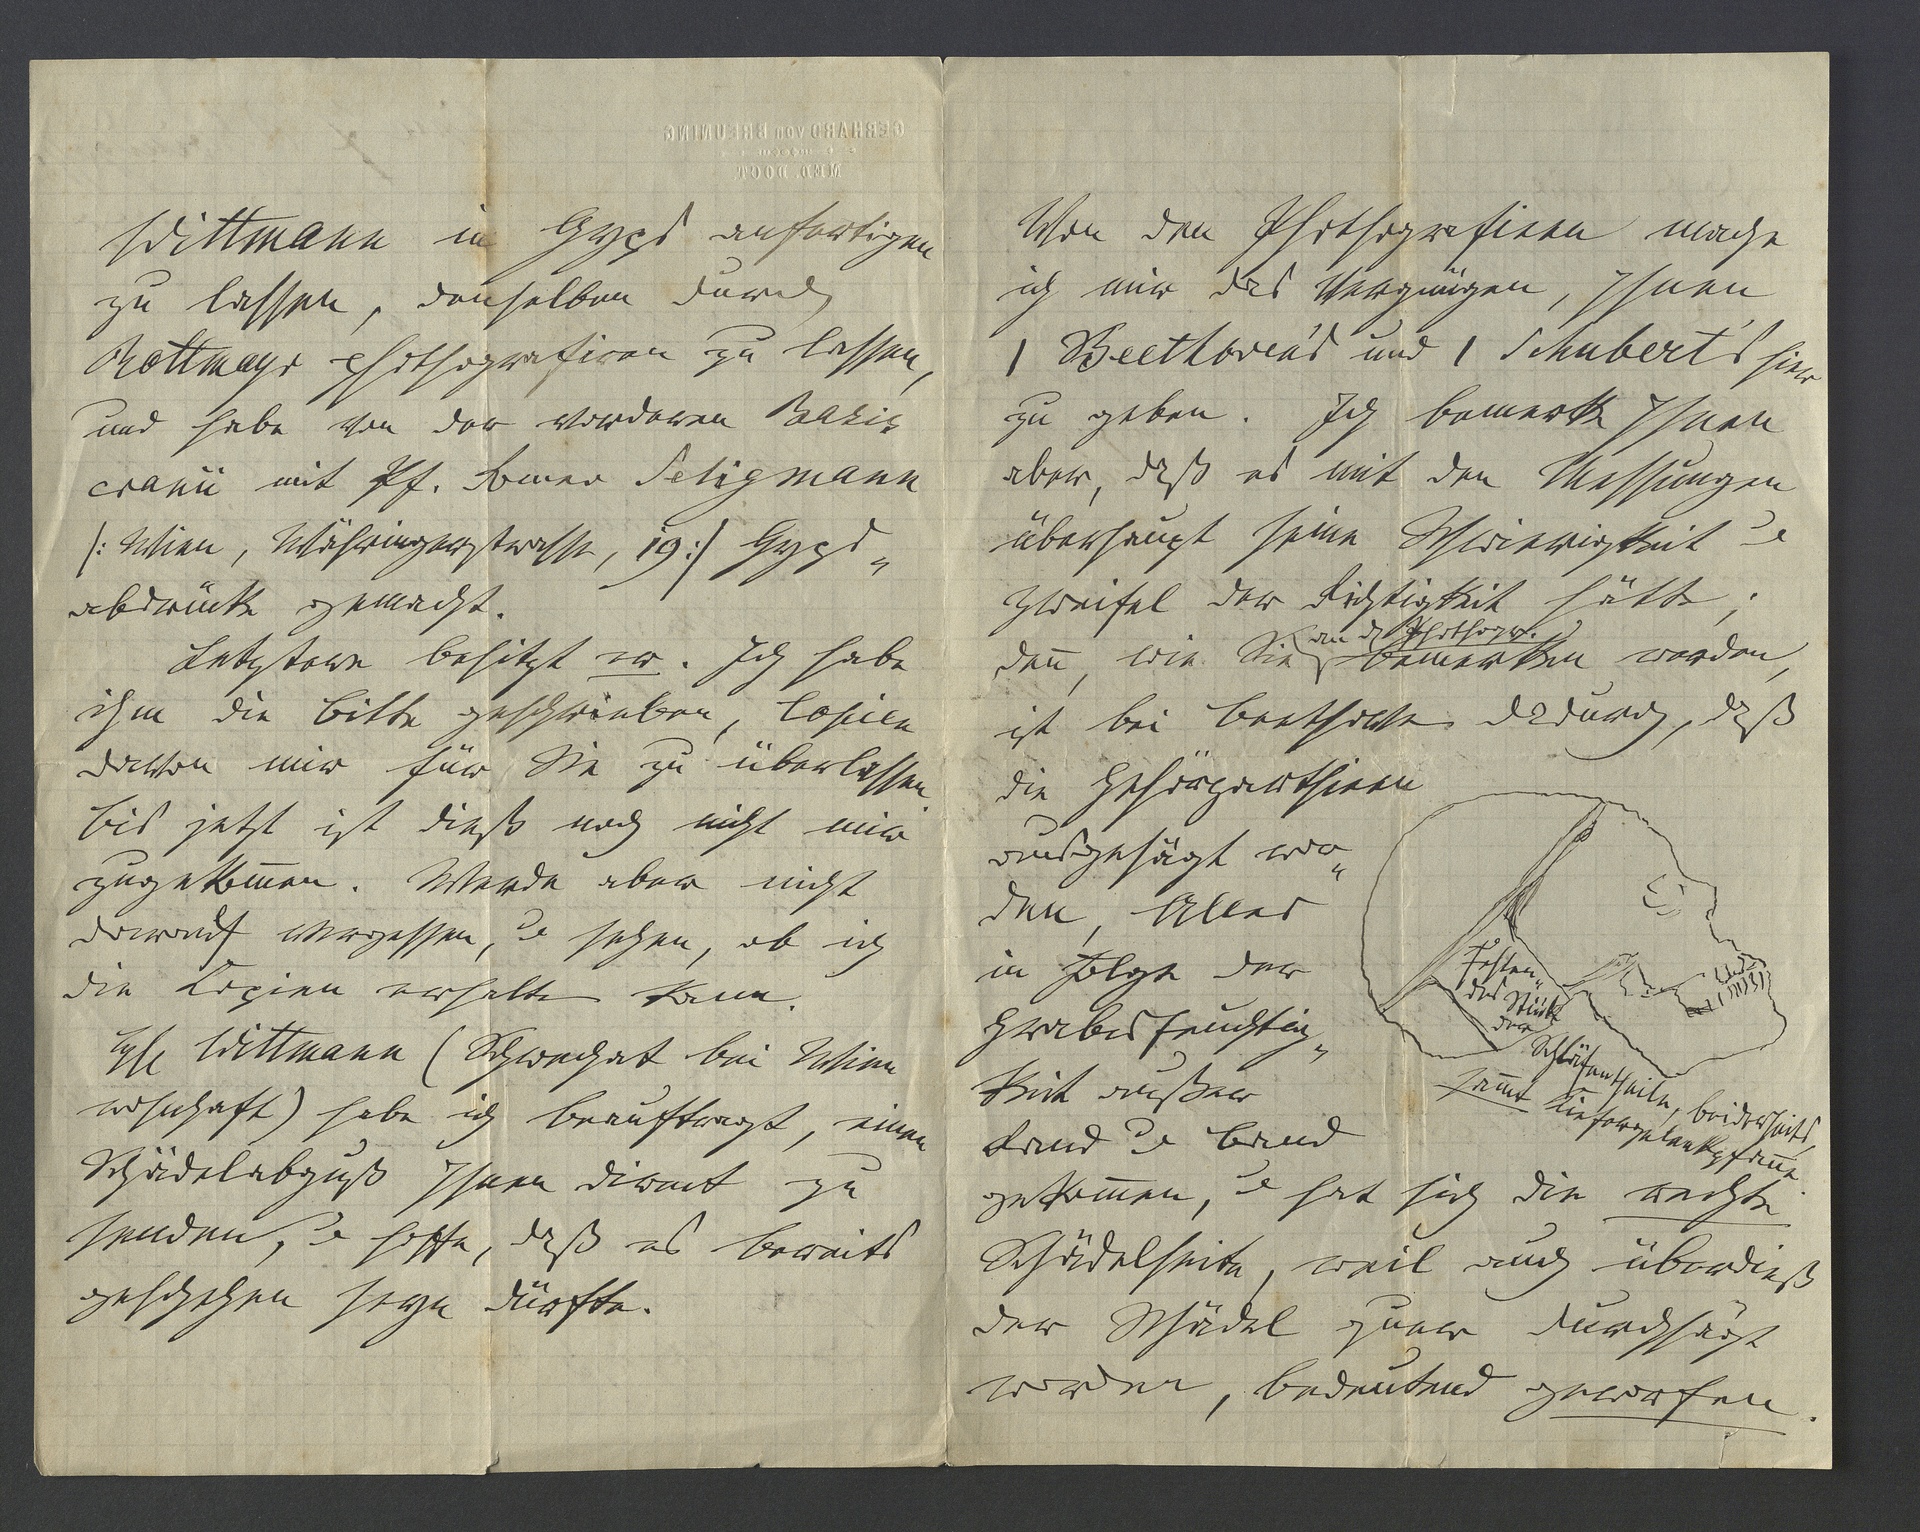 GERHARD von BREUNING
MED. DOCT
Wittmann in Gyps anfertigen
zu lassen, denselben durch
Rottmayr photografiren zu lassen,
und habe von der vorderen Basis
cranii mit Pf. Romeo Seligmann
/: Wien, Währingerstrasse, 19 :/ Gyps„
abdrücke gemacht.
Letztere besitzt er. Ich habe
ihm die Bitte geschrieben, Copien
davon mir für Sie zu überlassen
bis jetzt ist dieß noch nicht mir
zugekom̄en. Werde aber nicht
darauf vergessen, & sehen, ob ich
die Copien erhalten kann.
Wittmann (Schwechat bei Wien
wohnhaft) habe ich beauftragt, einen
Schädelabguß Ihnen direct zu
senden, & hoffe, daß es bereits
geschehen seyn dürfte.
Von den Photografieen mache
ich mir das Vergnügen, Ihnen
1 Beethoven's und 1 Schubert's hier
zu geben. Ich bemerke Ihnen
aber, daß es mit den Messungen
überhaupt seine Schwierigkeit &
Zweifel der Richtigkeit hätte;
an d. Photogr.
den̄, wie Sie bemerken werden,
ist bei Beethoven dadurch, daß
die Gehörparthieen
ausgesägt wor„
den, Alles
in Folge der
Grabesfeuchtig„
keit außer
Rand & Band
gekom̄en, & hat sich die rechte
Schädelseite, weil auch überdieß
der Schädel quer durchsägt
worden, bedeutend geworfen.
Fehlen„
des Stück
der
Schläfentheile, beiderseits,
sam̄t Kiefergelenkpfan̄e.